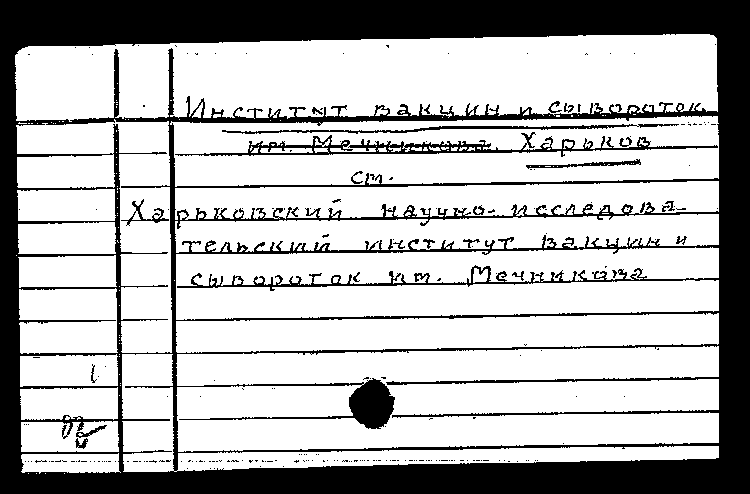 Институт вакцин и сывороток
им. Мечникова. Харьков
см.
Харьковский научно-исследова-
тельский институт вакцин и
сывороток им. Мечникова
1